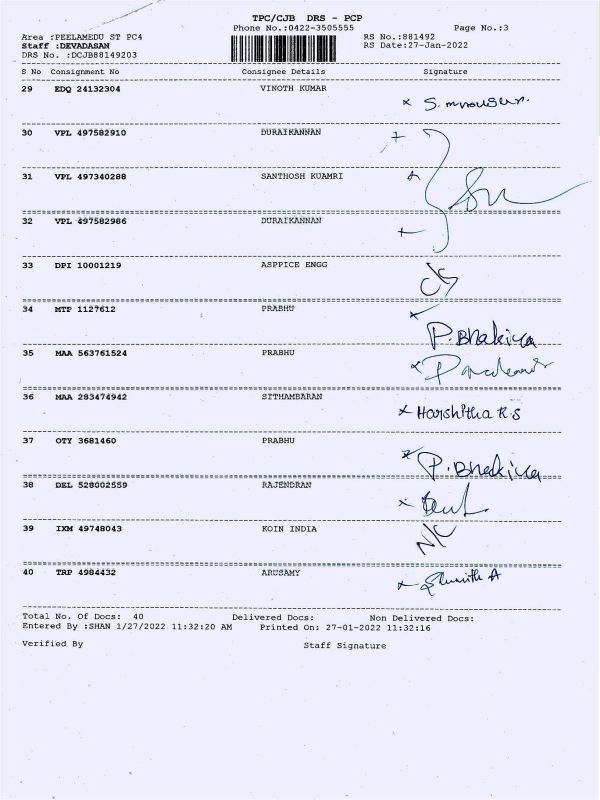 TPC/CJB DRS - PCP
Phone No.:0422-3505555 Page No.:3
Area :PEELAMEDU ST PC4 RS No.:881492
Staff :DEVADASAN RS Date:27-Jan-2022
DRS No. :DCJB88149203
S No Consignment No Consignee Details Signature
29 EDQ 24132304 VINOTH KUMAR
30 VPL 497582910 DURAIKANNAN
31 VPL 497340288 SANTHOSH KUAMRI
32 VPL 497582986 DURAIKANNAN
33 DPI 10001219 ASPPICE ENGG
34 MTP 1127612 PRABHU
P. Bhakiya
35 MAA 563761524 PRABHU
36 MAA 283474942 SITHAMBARAN
Harshitha R.S
37 OTY 3681460 PRABHU
P. Bhakiya
38 DEL 528002559 RAJENDRAN
39 IXM 49748043 KOIN INDIA
N/C
40 TRP 4984432 ARUSAMY
Total No. Of Docs: 40 Delivered Docs: Non Delivered Docs:
Entered By :SHAN 1/27/2022 11:32:20 AM Printed On: 27-01-2022 11:32:16
Verified By Staff Signature